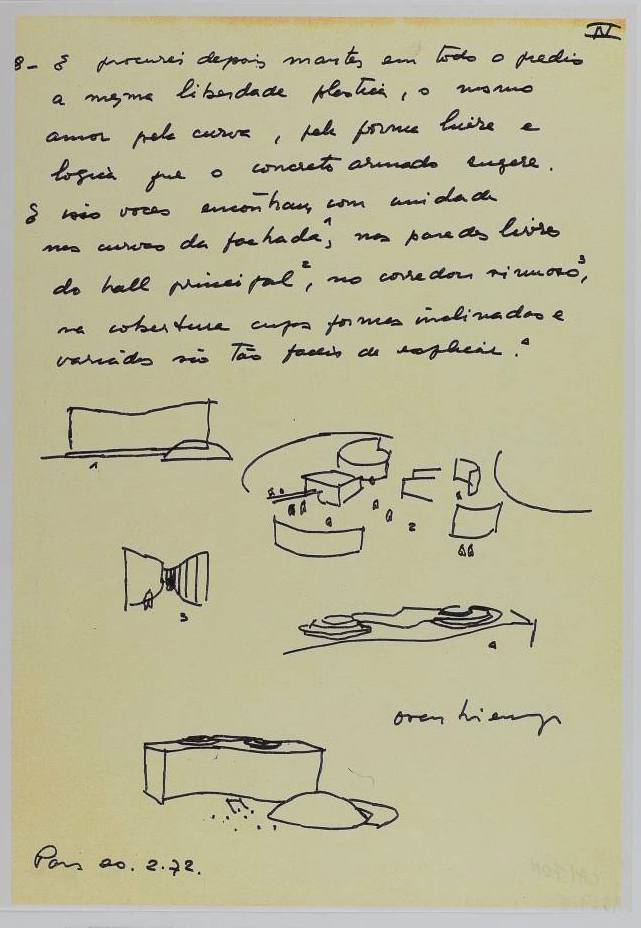 IV
8- E procurei depois manter em todo o predio
a mesma liberdade plastica, o mesmo
amor pela curva, pela forma livre e
logica que o concreto armado sugere.
E isso voces encontram com unidade
nas curvas da fachada¹, nas paredes livres
do hall principal², no corredor sinuoso³,
na cobertura cujas formas inclinadas e
variadas são tão faceis de explicar.⁴
1
2
3
4
Paris 20.2.72.